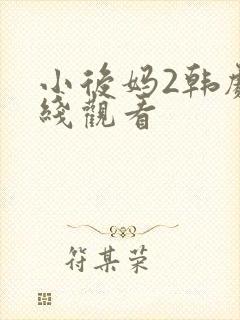 小後妈2韩劇
綫觀看
符某荣